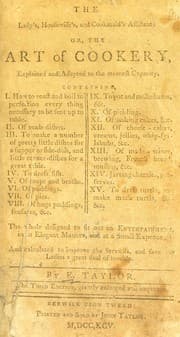 THE
Lady's, Housewife's, and Cookmaid's Assistant:
OR, THE
ART of COOKERY,
Explained and Adapted to the meanest Capacity.
CONTAINING,
I. How to roast and boil to
perfection every thing
necessary to be sent up to
table.
II. Of made dishes.
III. To make a number
of pretty little dishes for
a supper or side-dish, and
little corner dishes for a
great table.
IV. To dress fish.
V. Of soups and broths.
VI. Of puddings.
VII. Of pies.
VIII. Of hogs puddings,
sausages, &c.
IX. To pot and make hams,
&c.
X. Of pickling.
XI. Of making cakes, &c.
XII. Of cheese-cakes,
creams, jellies, whip
syllabubs, &c.
XIII. Of made wines,
brewing, French bread,
&c.
XIV. Jarring cherries,
preserves, &c.
XV. To dress turtle,
make mock turtle, &
&c.
The whole designed to fit out an ENTERTAINMENT
in an Elegant Manner, and at a Small Expence.
And calculated to improve the Servants, and save
Ladies a great deal of trouble.
By E. TAYLOR.
The Third Edition, greatly enlarged
BERWICK UPON TWEED:
PRINTED AND SOLD BY JOHN TAYLOR.
M,DCC,XCV.